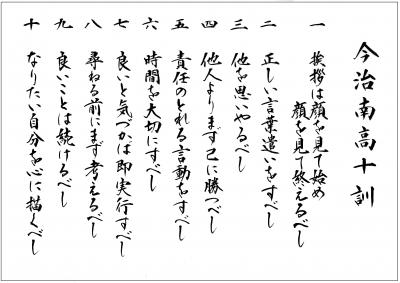 今治南高十訓
一 挨拶は顔を見て始め
顔を見て終えるべし
二 正しい言葉遣いをすべし
三 他を思いやるべし
四 他人よりまず己に勝つべし
五 責任のとれる言動をすべし
六 時間を大切にすべし
七 良いと気づかば即実行すべし
八 尋ねる前にまず考えるべし
九 良いことは続けるべし
十 なりたい自分を心に描くべし